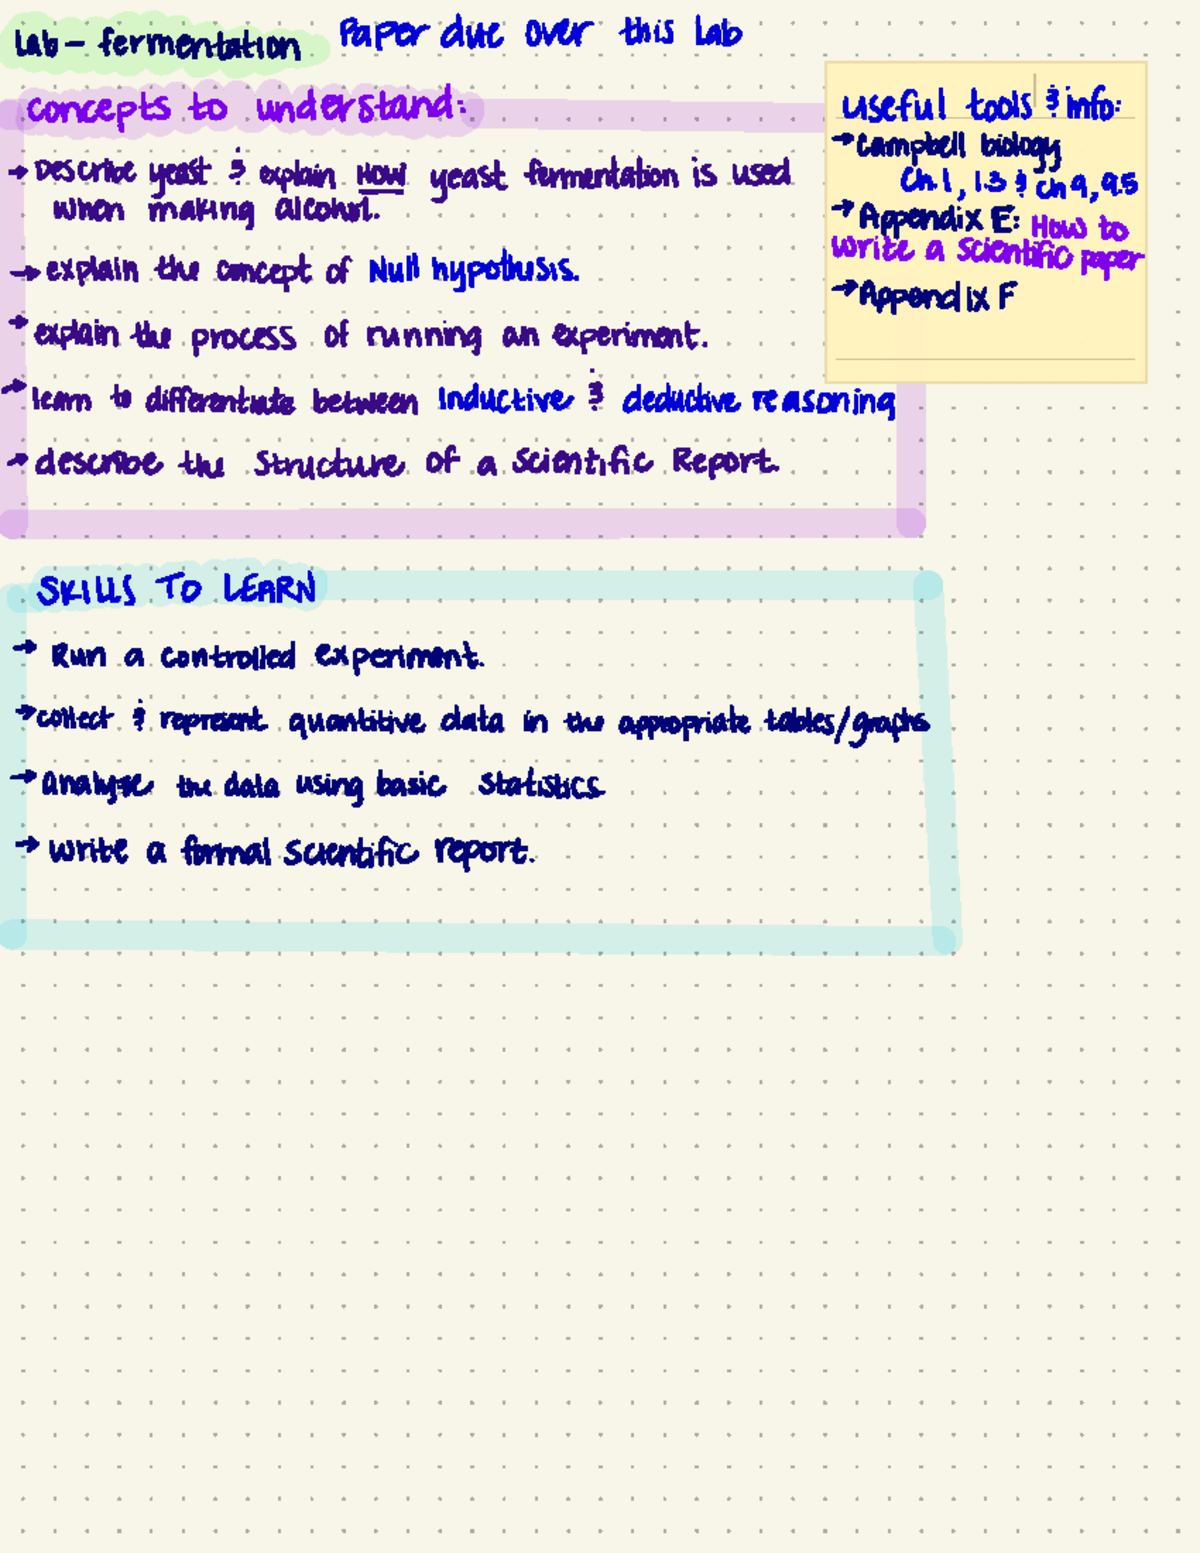 Lab - fermentation
Paper due over this Lab
concepts to understand:
→ Describe yeast & explain HOW yeast fermentation is used
when making alcohol.
→ explain the concept of Null hypothesis.
→ explain the process of running an experiment.
→ learn to differentiate between Inductive & deductive reasoning
→ describe the Structure of a Scientific Report.
useful tools & info:
→ Campbell biology
Ch. 1, 1.3 & ch 9, 9.5
→ Appendix E: How to
write a scientific paper
→ Appendix F
SKILLS TO LEARN
→ Run a controlled experiment.
→ collect & represent quantitive data in the appropriate tables/graphs
→ analyze the data using basic statistics
→ write a formal scientific report.